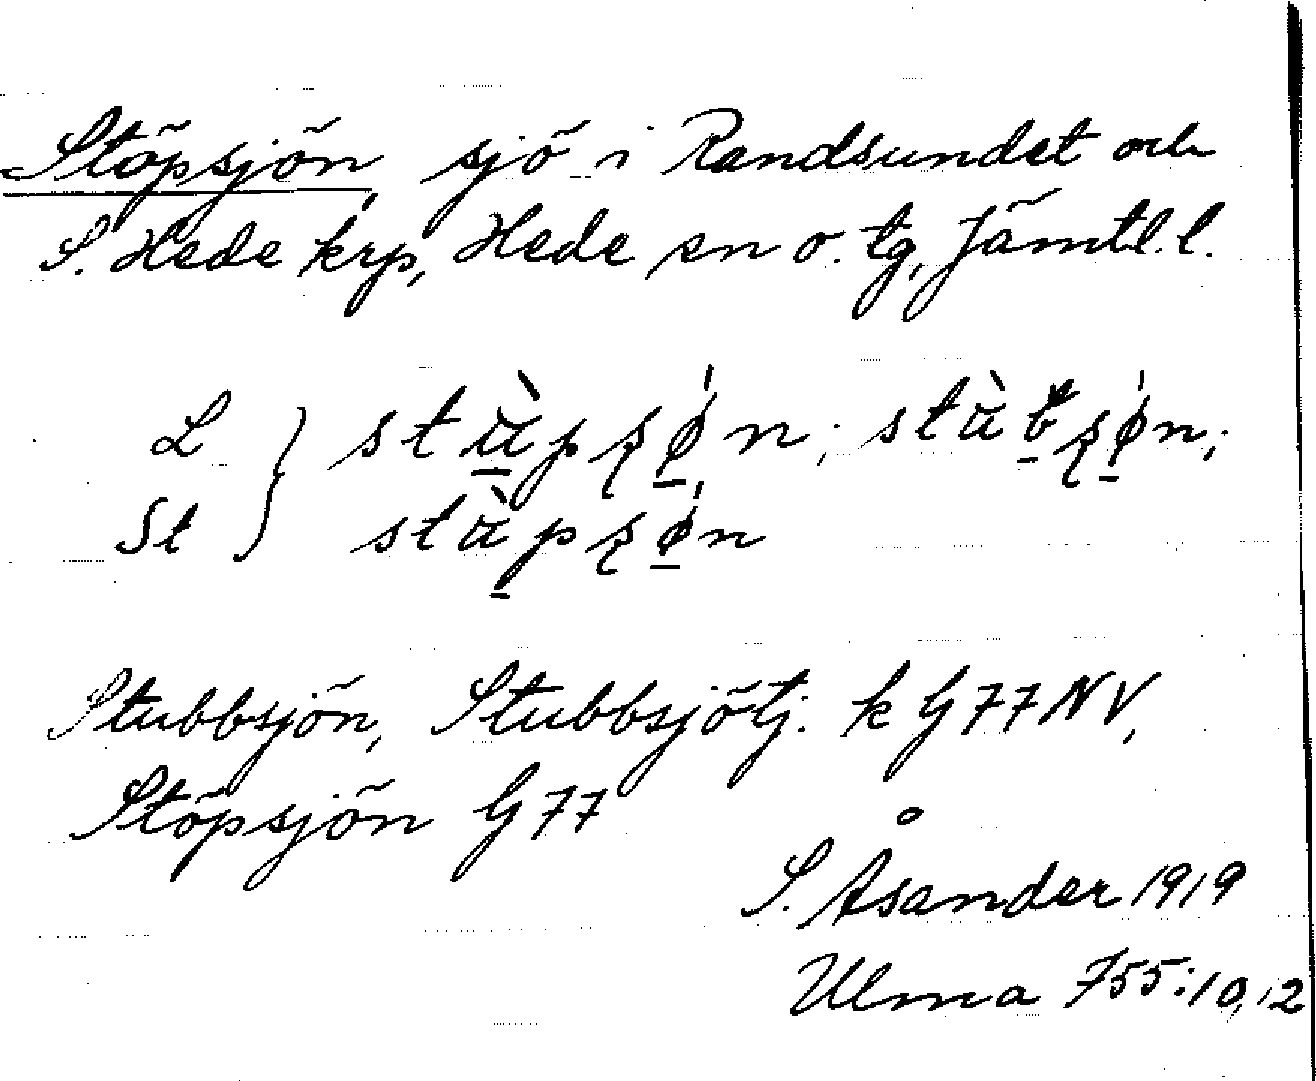 Stöpsjön, sjö i Randsundet och
S. Hede krp, Hede sn o. tg, Jämtl. l.
L } stù̲pʂǿ̲n; stùb̲ʂǿ̲n;
St } stùp̲ʂǿ̲n
Stubbsjön, Stubbsjötj. k G77NV,
Stöpsjön G77
S. Åsander 1919
Ulma 755:10,12